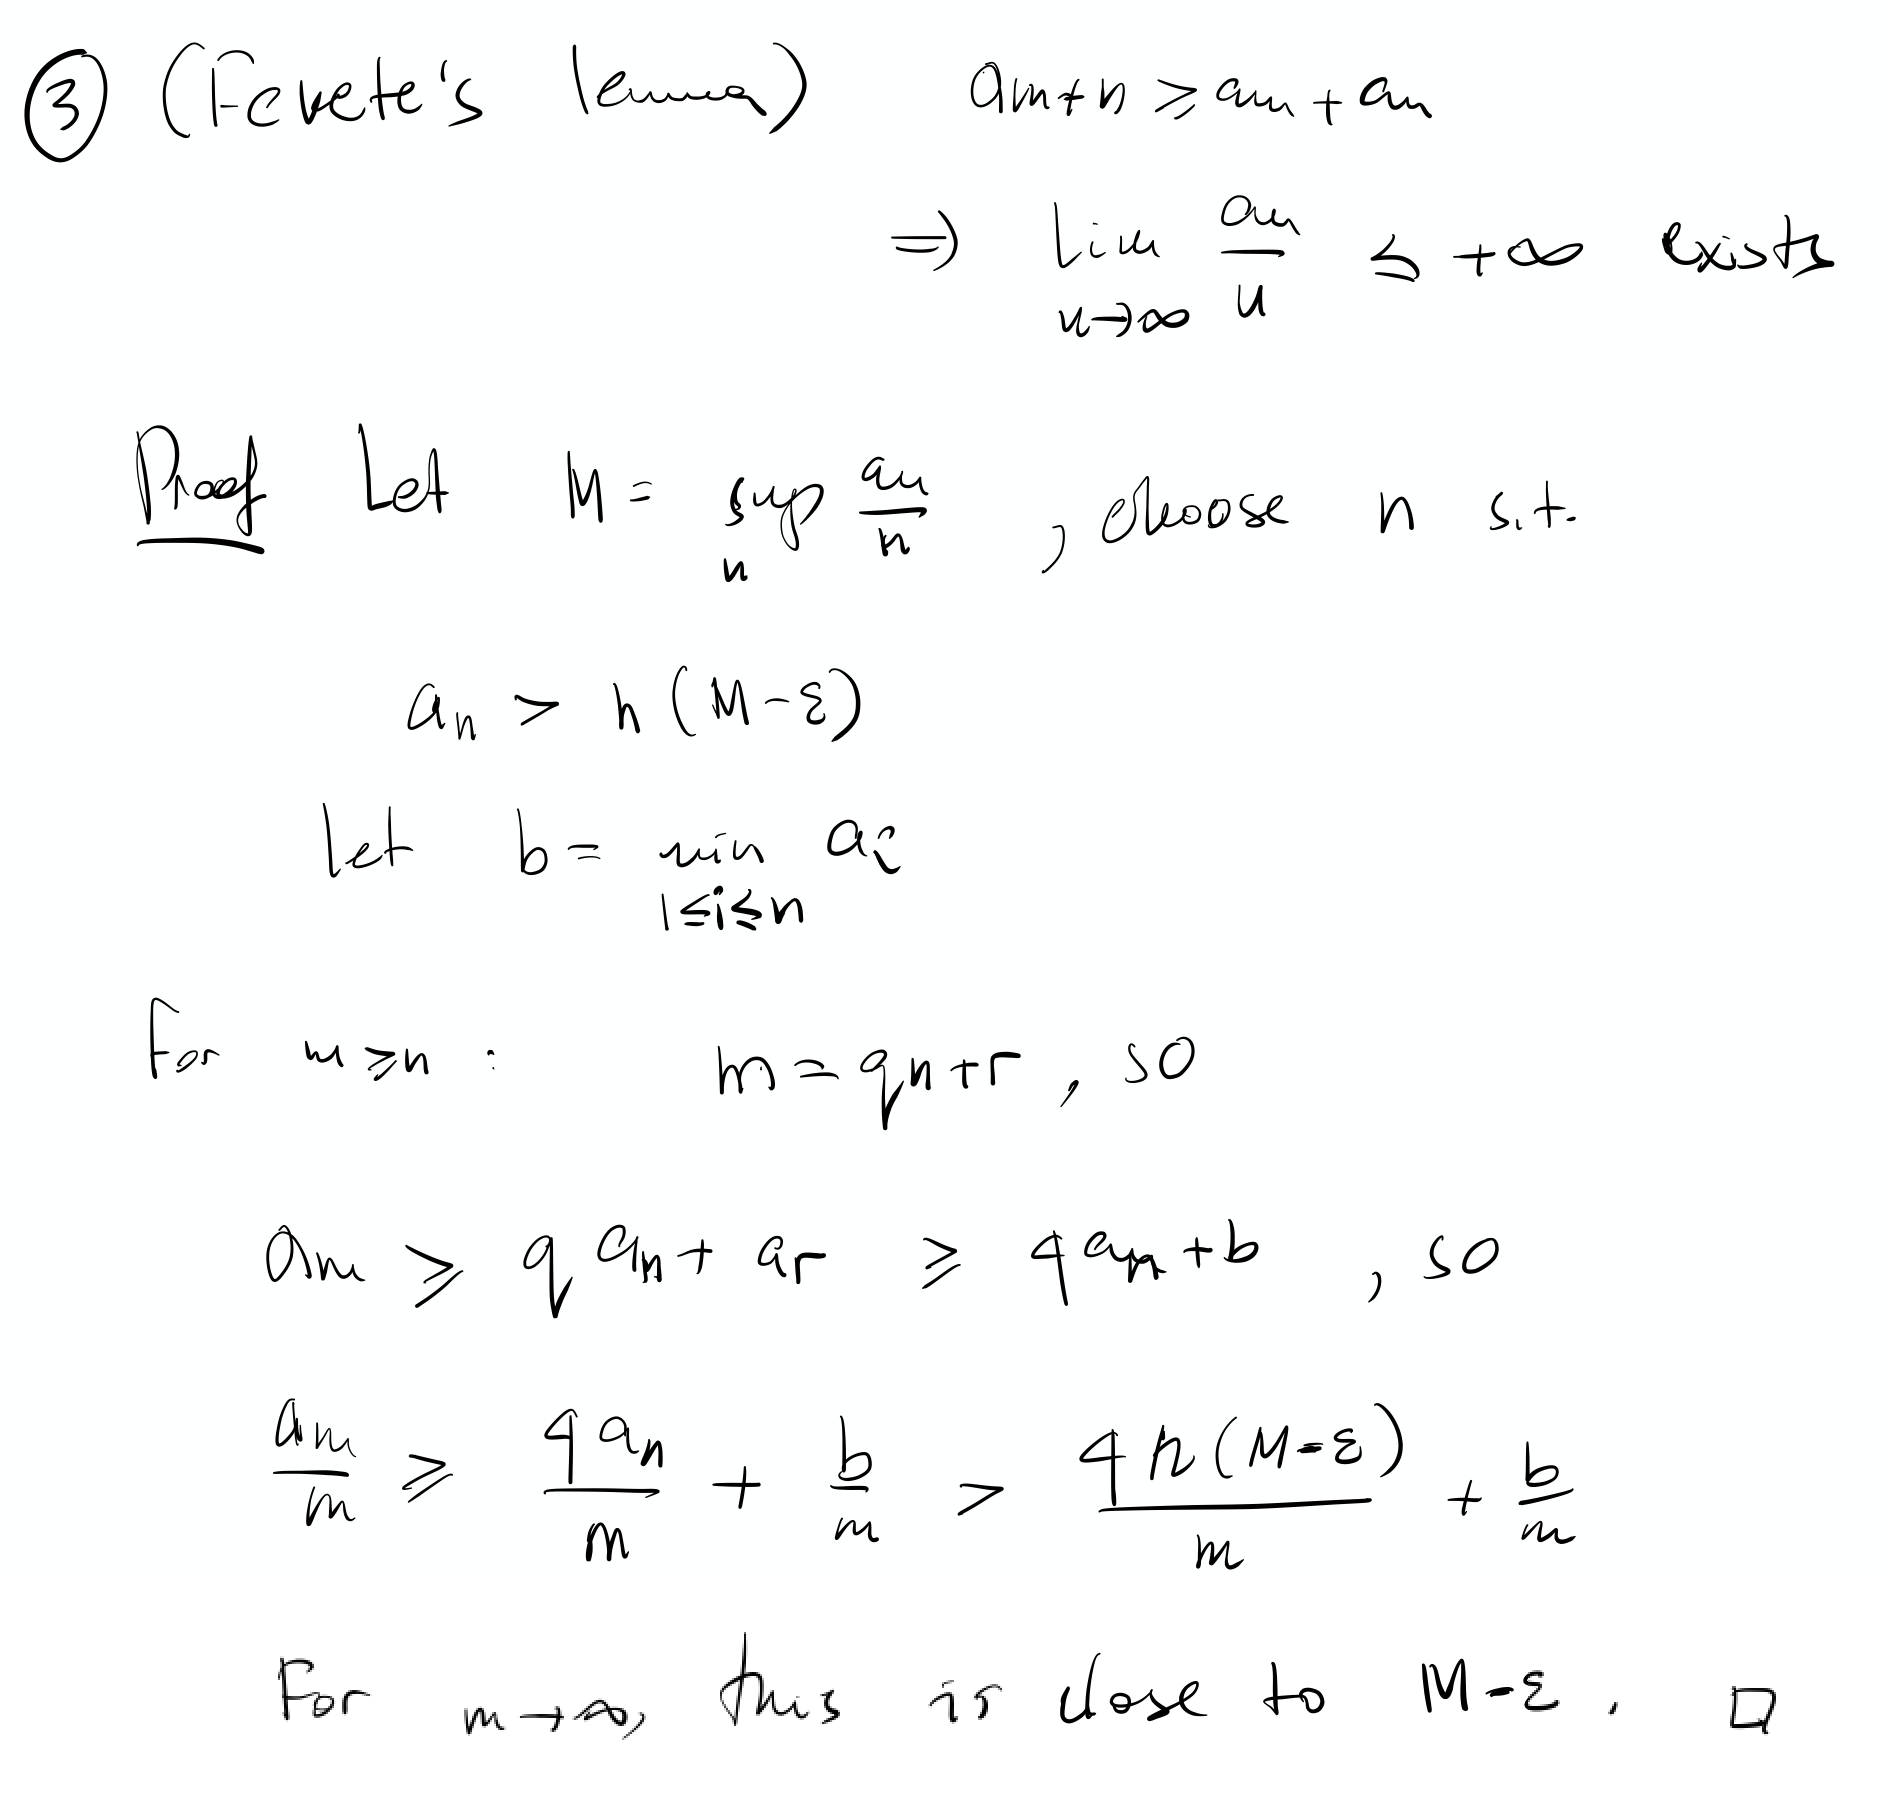 ③ (Fekete's lemma) a_{m+n} ≥ a_m + a_n
⇒ lim_{n→∞} a_n/n ≤ +∞ exists
Proof Let M = sup_n a_n/n, choose n s.t.
a_n > n(M-ε)
Let b = min_{1≤i≤n} a_i
For m ≥ n : m = qn+r, so
a_m ≥ q a_n + a_r ≥ q a_n + b, so
a_m/m ≥ q a_n/m + b/m > q n(M-ε)/m + b/m
For m→∞, this is close to M-ε. □